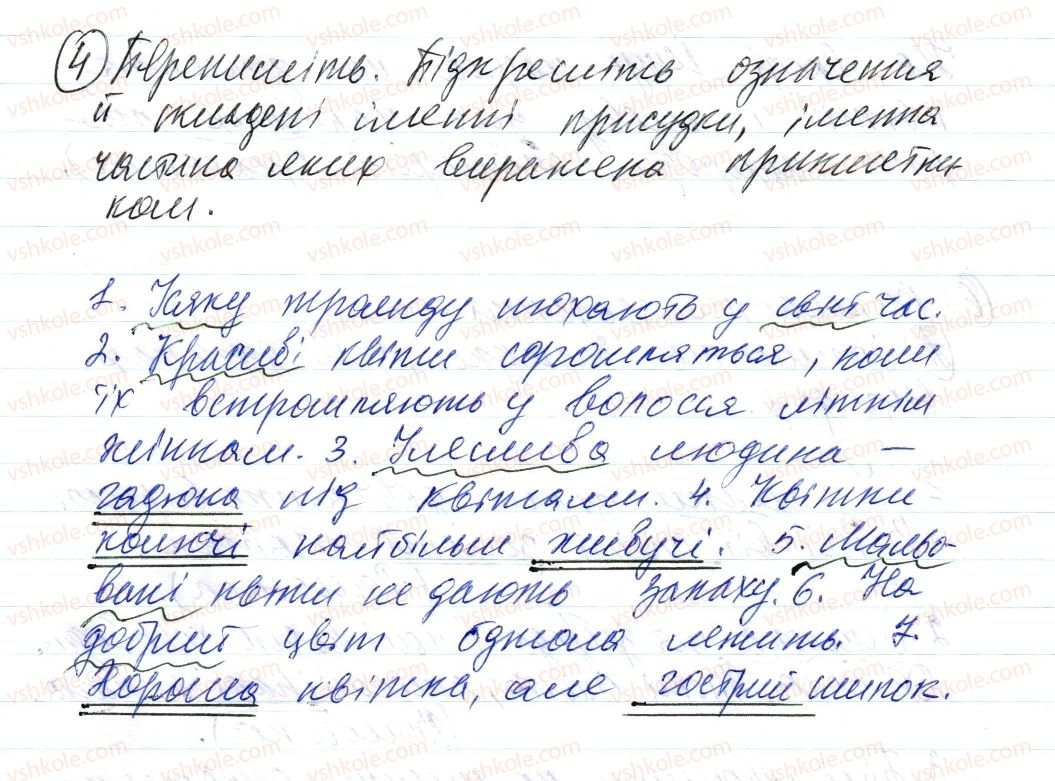 4 Перепишіть. Підкресліть означення
й складені іменні присудки, іменна
частина яких виражена прикметни
ком.
1. Усяку троянду нюхають у свій час.
2. Красиві квіти соромляться, коли
їх встромляють у волосся літнім
жінкам. 3. Улеслива людина –
гадюка під квітами. 4. Квітки
колючі найбільш живучі. 5. Мальо-
вані квіти не дають запаху. 6. На
добрий цвіт бджола летить. 7.
Хороша квітка, але гострий шипок.